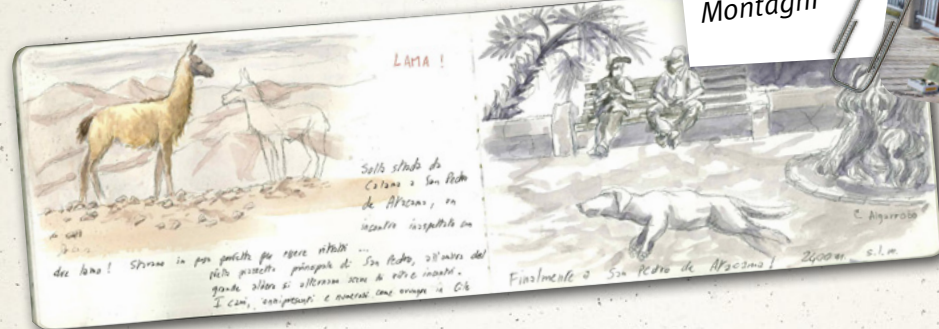 Montagni
LAMA !
Sulla strada da
Calama a San Pedro
de Atacama, un
incontro inaspettato con
due lama ! Stavano in posa perfetta per essere ritratti ...
piazzetta principale di San Pedro, all'ombra del
grande albero si alternano scene di vita e incontri.
I cani, onnipresenti e numerosi come ovunque in Cile
Finalmente a San Pedro de Atacama ! 2400 m. s.l.m.